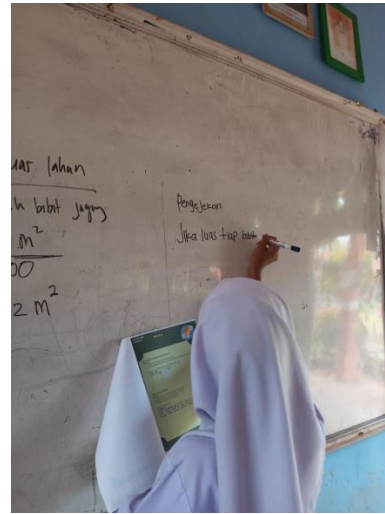 uas lahan
h bibit jagung
m²
00
2 m²
Pengejekan
Jika luas tiap bibit